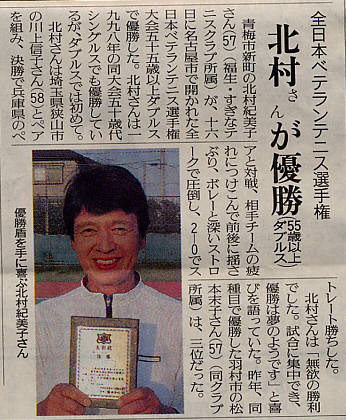 全日本ベテランテニス選手権
北村さんが優勝
55歳以上
ダブルス
青梅市新町の北村紀美子
さん(57)(福生・すぎなテ
ニスクラブ所属)が、十六
日に名古屋市で開かれた全
日本ベテランテニス選手権
大会五十五歳以上ダブルス
で優勝した。北村さんは一
九九八年の同大会五十歳代
シングルスでも優勝してい
るが、ダブルスでは初めて。
北村さんは埼玉県狭山市
の川上信子さん(58)とペア
を組み、決勝で兵庫県のペ
アと対戦、相手チームの疲
れにつけこんで前後に揺さ
ぶり、ボレーと深いストロ
ークで圧倒し、2―0でス
トレート勝ちした。
北村さんは「無欲の勝利
でした。試合に集中でき、
優勝は夢のようです」と喜
びを語っていた。昨年、同
種目で優勝した羽村市の松
本末子さん(57)(同クラブ
所属)は、三位だった。
優勝盾を手に喜ぶ北村紀美子さん